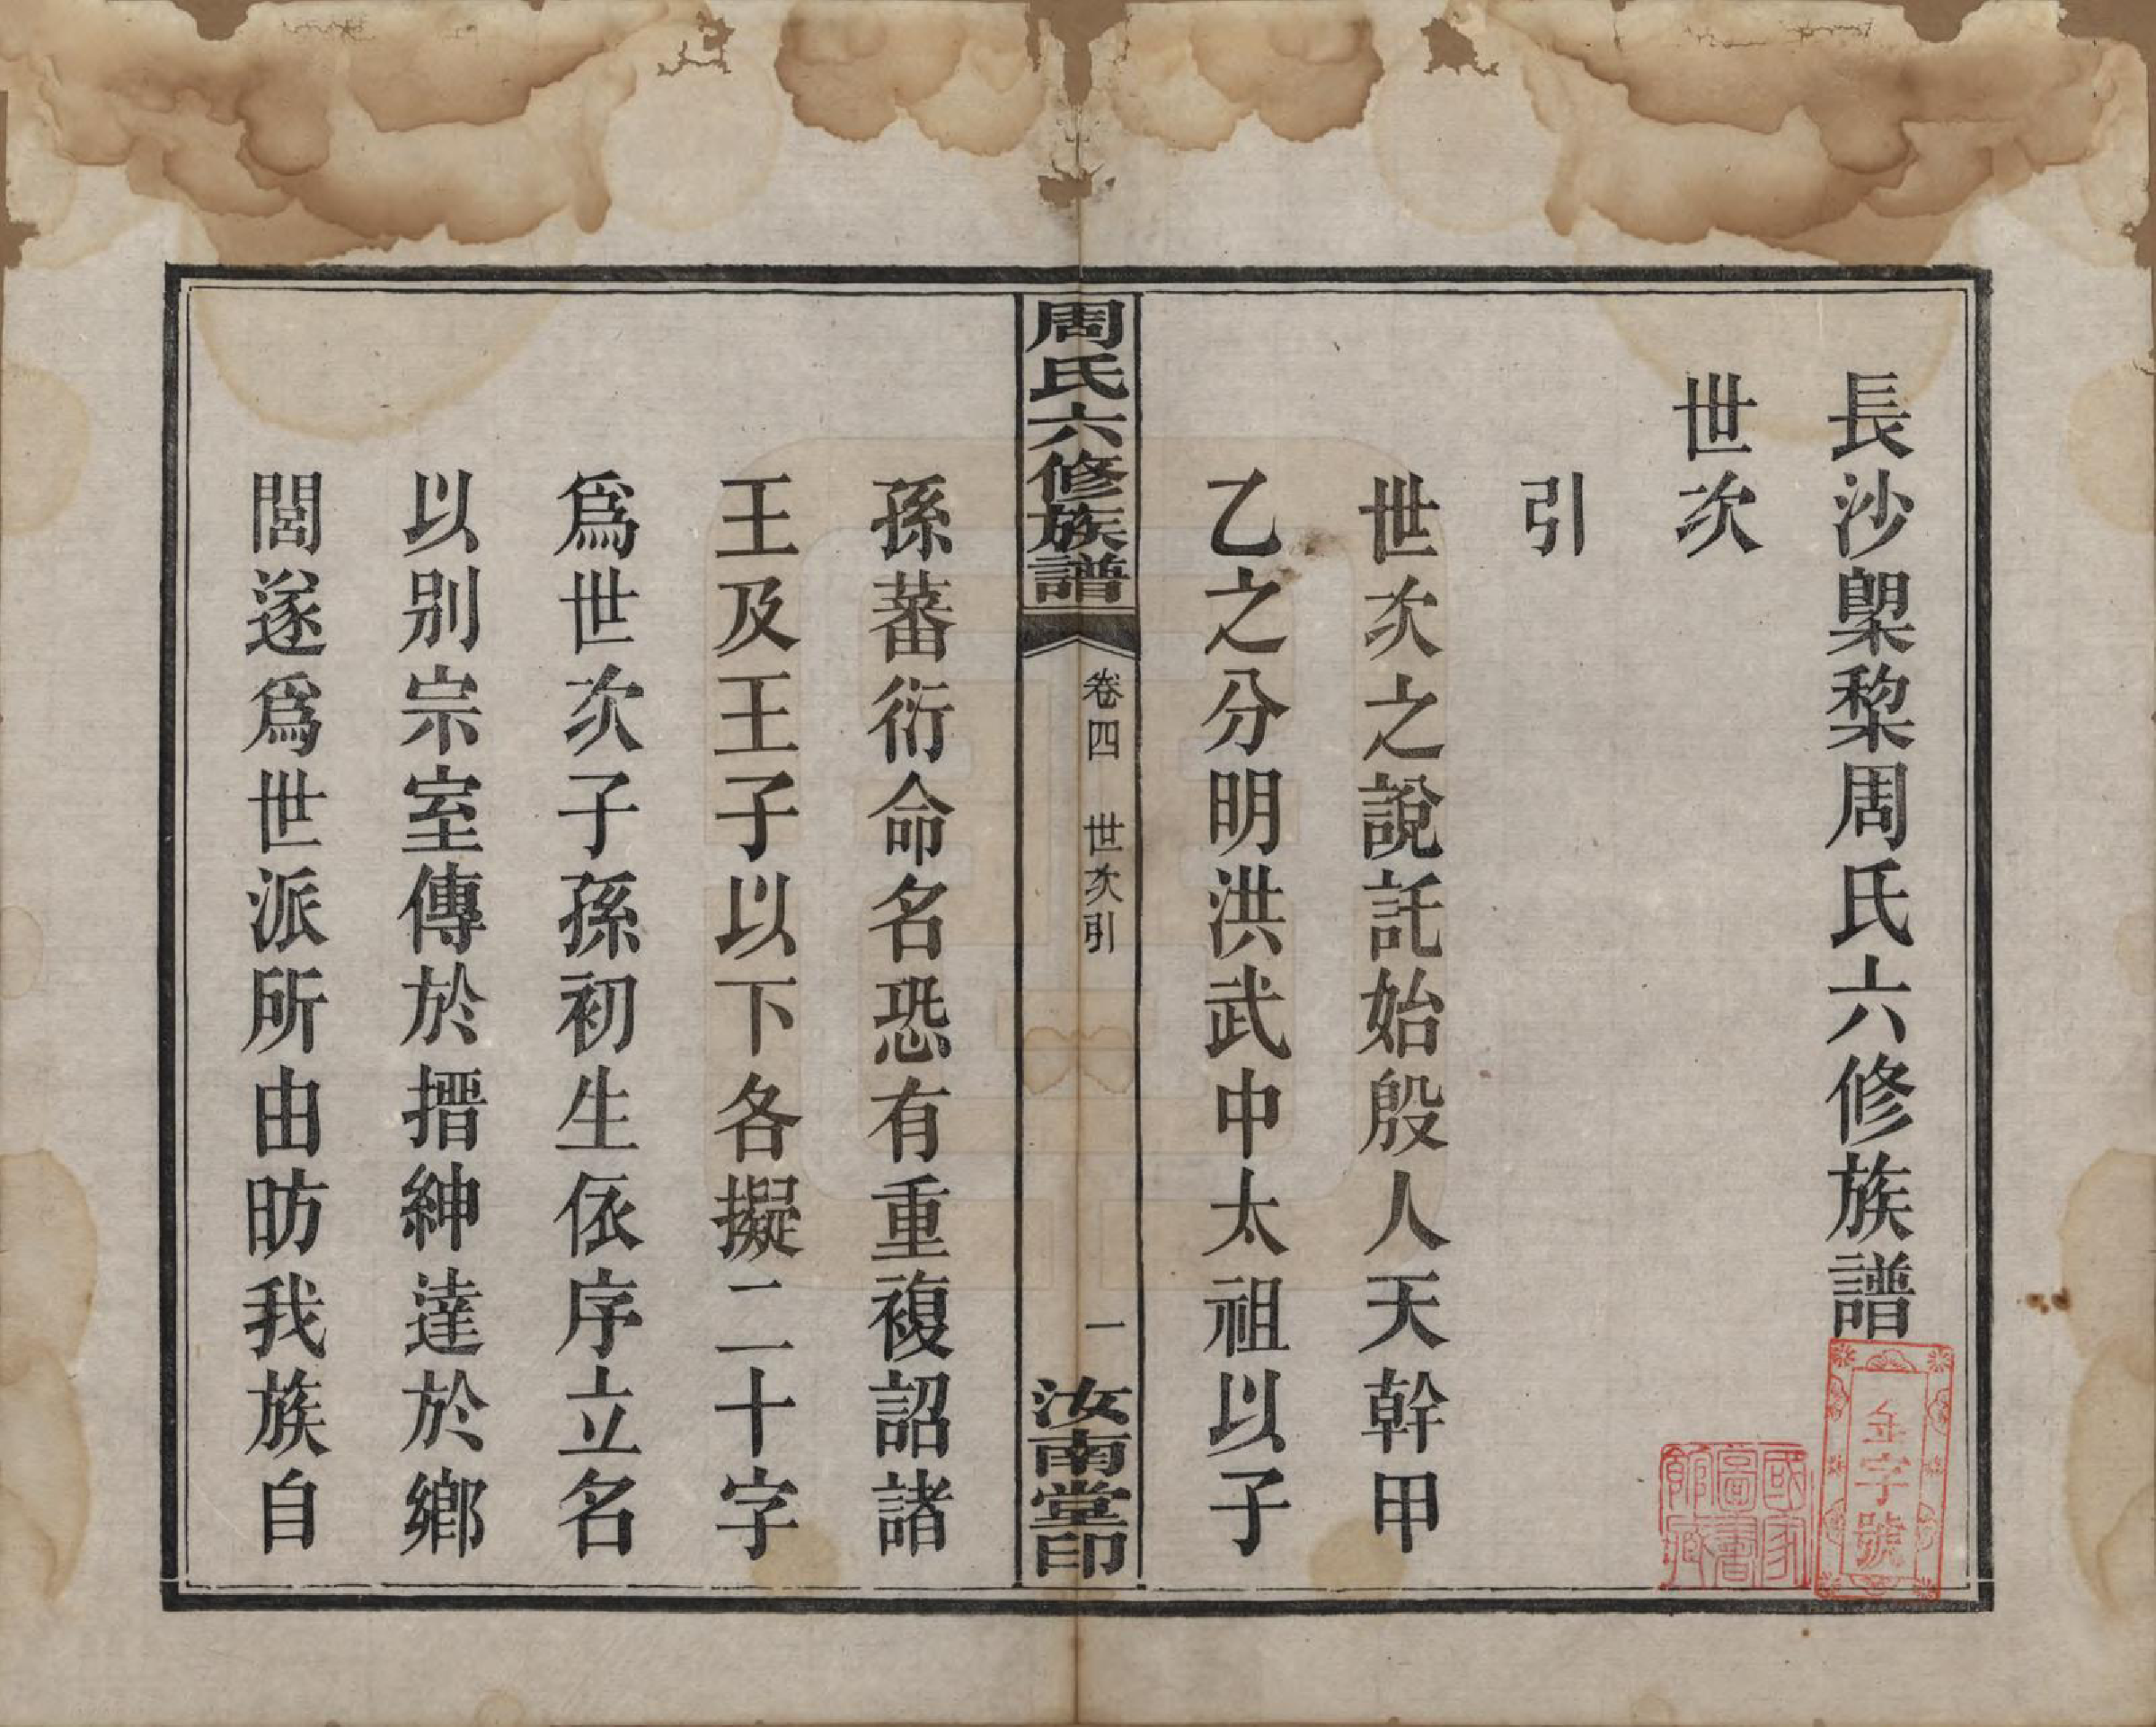 長沙㮚棃周氏六修族譜
世次
引
世次之說託始殷人天幹甲
乙之分明洪武中太祖以子
周氏六修族譜
卷四 世次引
一
汝南堂印
孫蕃衍命名恐有重複詔諸
王及王子以下各擬二十字
爲世次子孫初生依序立名
以别宗室傳於搢紳達於鄉
閭遂爲世派所由昉我族自
金字號
國家圖書館藏